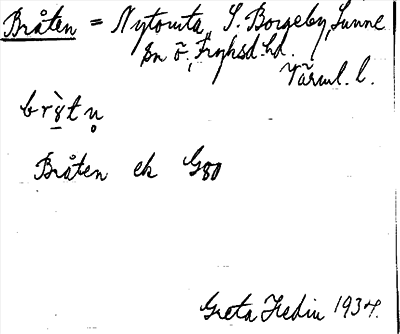 Bråten = Nytomta, S. Borgeby, Sunne
sn ö. Fryksd. hd.
Värml. l.
brɣ̀tn̥
Bråten ek G80
Greta Hedin 1934.